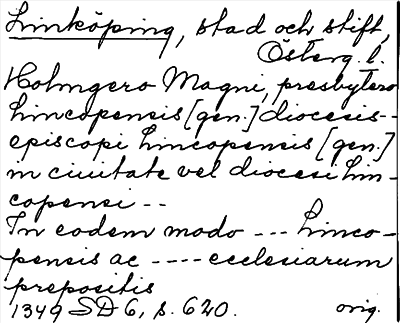 Linköping, stad och stift,
Österg. l.
Holmgero Magni, presbytero
Lincopensis [gen.] diocesis--
episcopi Lincopensis [gen.]
in ciuitate vel diocesi Lin-
copensi --
In eodem modo --- Linco-
pensis ac ---- ecclesiarum
prepositis
1349 SD 6, s. 620. orig.